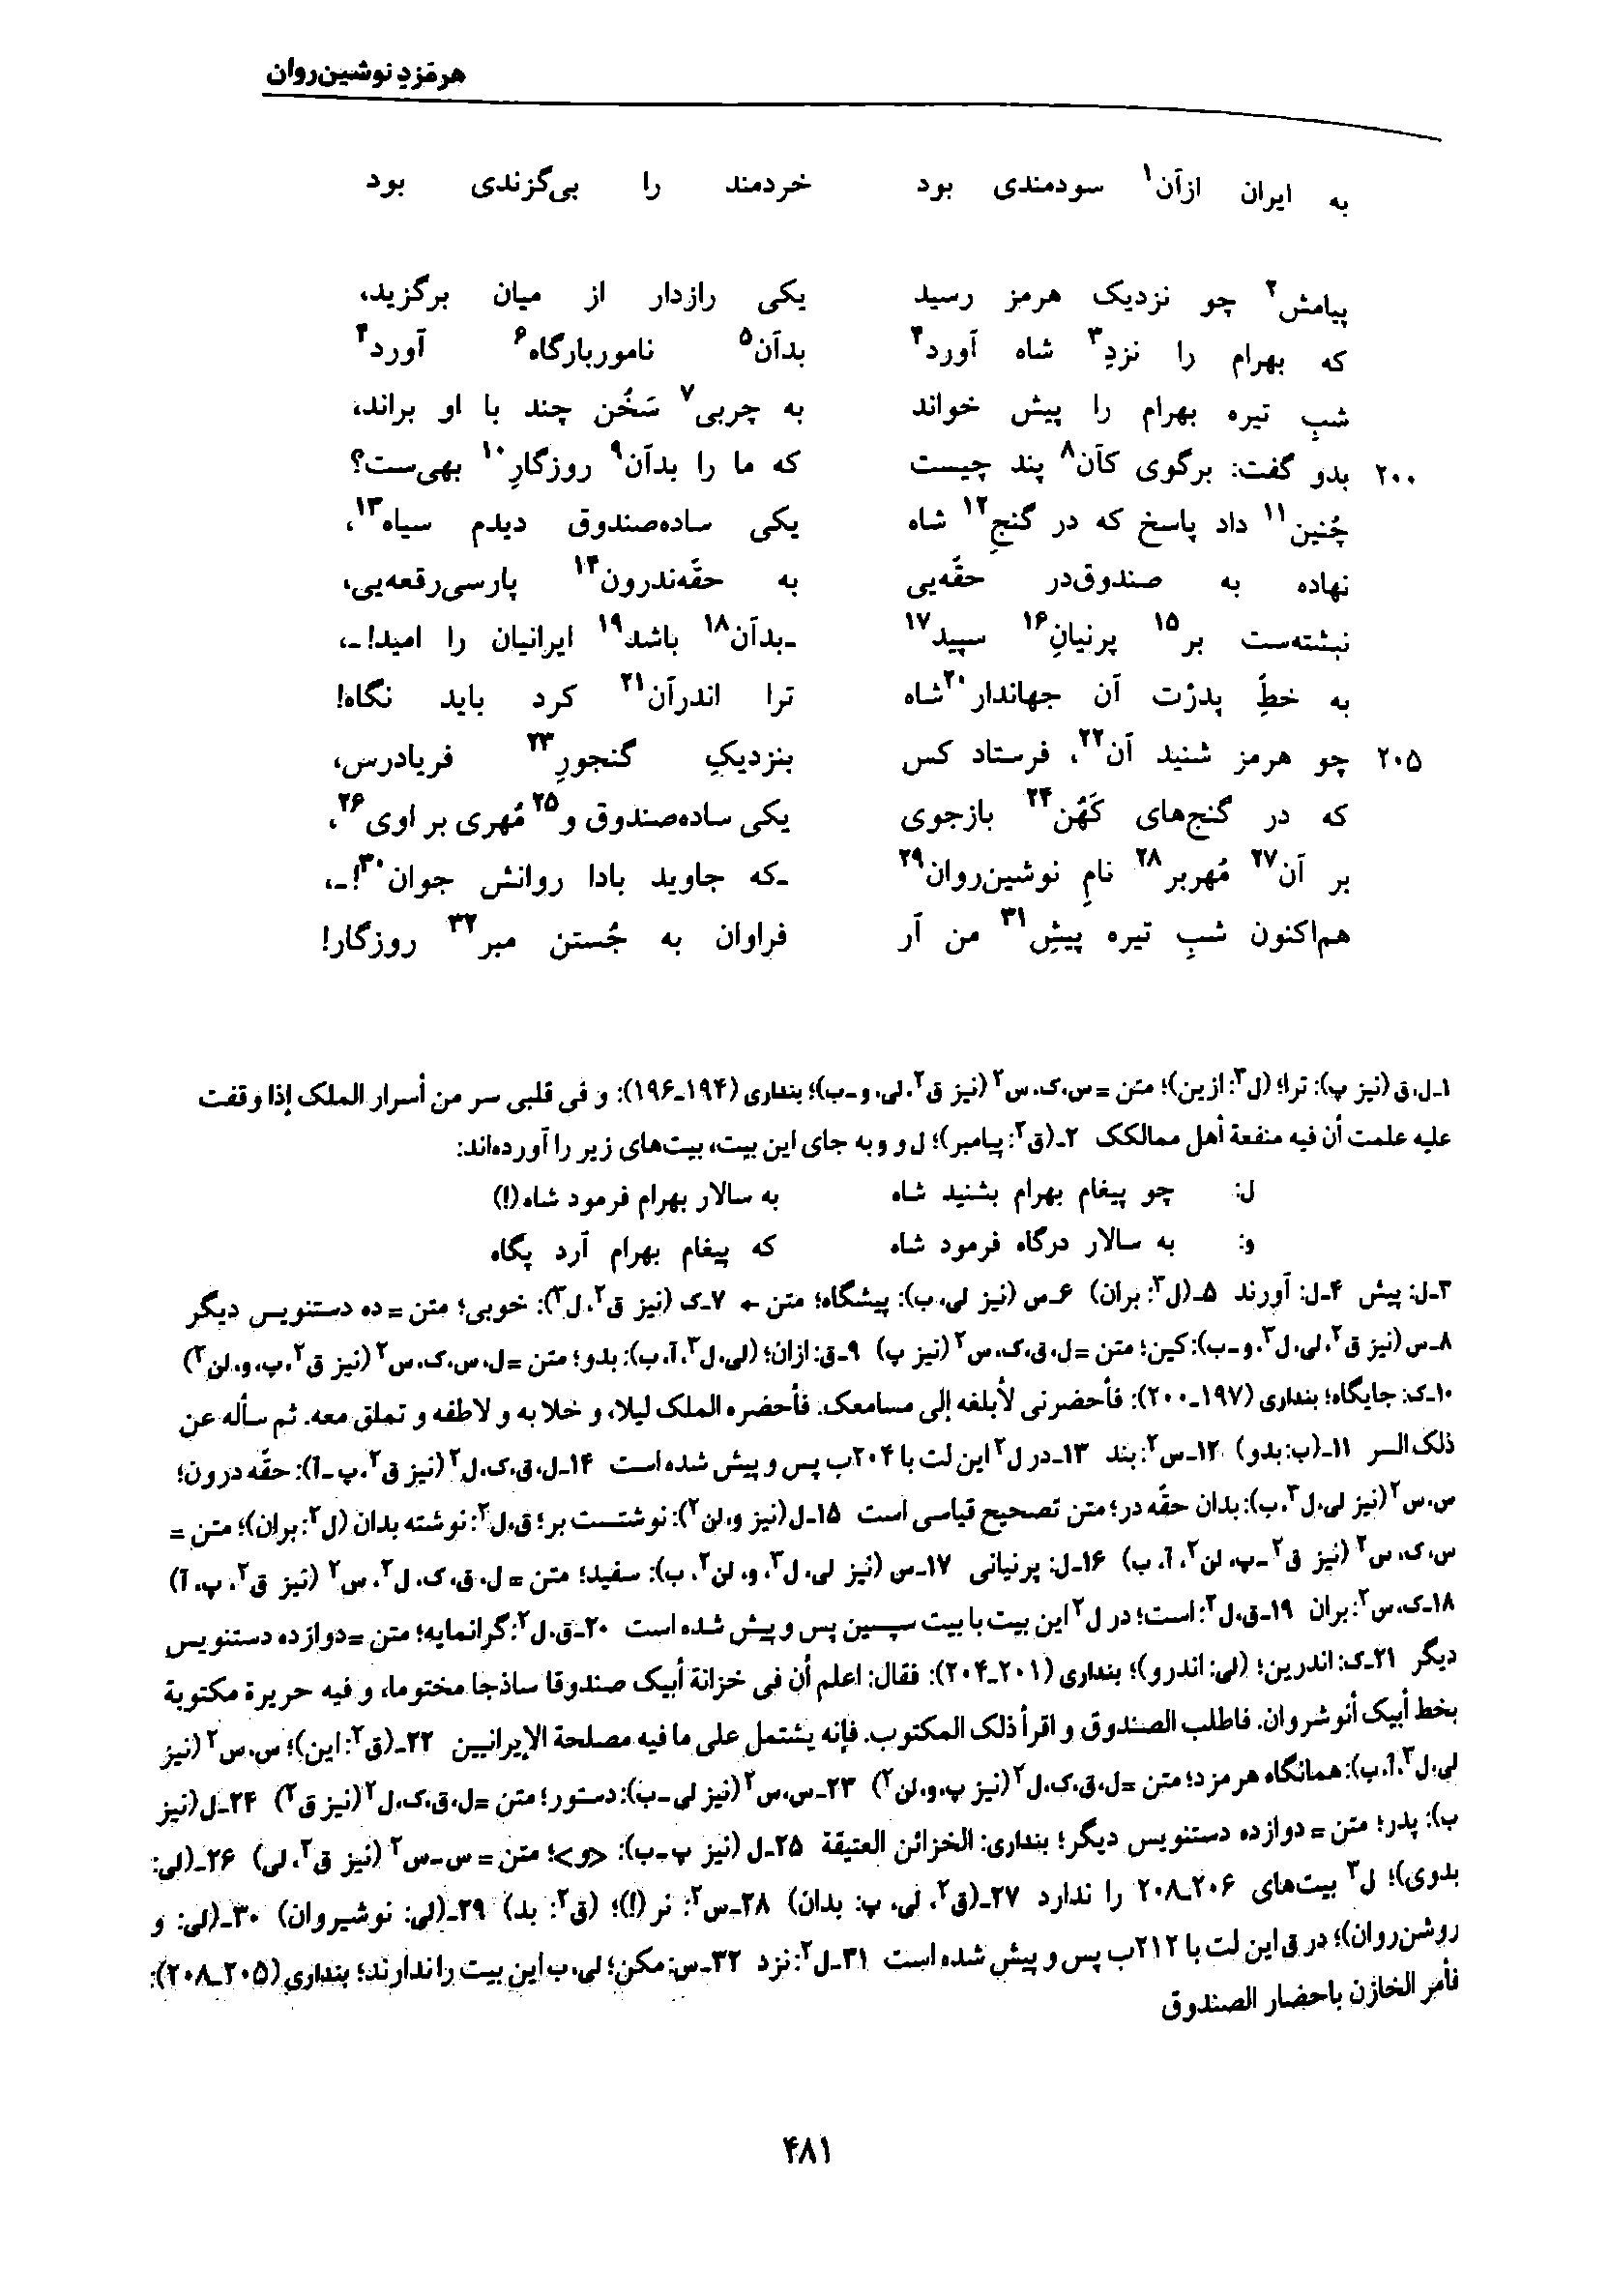 هرمَزدِ نوشین‌روان
به ایران ازآن۱ سودمندی بود خردمند را بی‌گزندی بود
پیامش۲ چو نزدیک هرمز رسید یکی رازدار از میان برگزید،
که بهرام را نزدِ۳ شاه آورد۴ بدآن۵ ناموربارگاه۶ آورد۴
شبِ تیره بهرام را پیش خواند به چربی۷ سَخُن چند با او براند،
۲۰۰ بدو گفت: برگوی کآن۸ پند چیست که ما را بدآن۹ روزگارِ۱۰ بهی‌ست؟
چُنین۱۱ داد پاسخ که در گنجِ۱۲ شاه یکی ساده‌صندوق دیدم سیاه۱۳،
نهاده به صندوق‌در حقّه‌یی به حقّه‌ندرون۱۴ پارسی‌رقعه‌یی،
نبشته‌ست بر۱۵ پرنیانِ۱۶ سپید۱۷ ـبدآن۱۸ باشد۱۹ ایرانیان را امید!ـ،
به خطِّ پدرْت آن جهاندار۲۰شاه ترا اندرآن۲۱ کرد باید نگاه!
۲۰۵ چو هرمز شنید آن۲۲، فرستاد کس بنزدیکِ گنجورِ۲۳ فریادرس،
که در گنج‌های کَهُن۲۴ بازجوی یکی ساده‌صندوق و۲۵ مُهری بر اوی۲۶،
بر آن۲۷ مُهربر۲۸ نامِ نوشین‌روان۲۹ ـکه جاوید بادا روانش جوان۳۰!ـ،
هم‌اکنون شبِ تیره پیشِ۳۱ من آر فراوان به جُستن مبر۳۲ روزگار!
۱ـ ل، ق (نیز پ): ترا؛ (ل۳: ازین)؛ متن = س، ک، س۲ (نیز ق۲، لی، و ـ ب)؛ بنداری (۱۹۴ـ۱۹۶): و فی قلبی سر من أسرار الملک إذا وقفت
علیه علمت أن فیه منفعة أهل ممالکک ۲ـ (ق۲: پیامبر)؛ ل و و به جای این بیت، بیت‌های زیر را آورده‌اند:
ل: چو پیغام بهرام بشنید شاه به سالار بهرام فرمود شاه (!)
و: به سالار درگاه فرمود شاه که پیغام بهرام آرد پگاه
۳ـ ل: پیش ۴ـ ل: آورند ۵ـ (ل۳: بران) ۶ـ س (نیز لی، ب): پیشگاه؛ متن ← ۷ـ ک (نیز ق۲، ل۳): خوبی؛ متن = ده دستنویس دیگر
۸ـ س (نیز ق۲، لی، ل۳، و ـ ب): کین؛ متن = ل، ق، ک، س۲ (نیز پ) ۹ـ ق: ازان؛ (لی، ل۳، آ، ب): بدو؛ متن = ل، س، ک، س۲ (نیز ق۲، پ، و، لن۲)
۱۰ـ ک: جایگاه؛ بنداری (۱۹۷ـ۲۰۰): فأحضرنی لأبلغه إلی مسامعک. فأحضره الملک لیلا، و خلا به و لاطفه و تملق معه. ثم سأله عن
ذلک السر ۱۱ـ (ب: بدو) ۱۲ـ س۲: بند ۱۳ـ در ل۲ این لت با ۲۰۴ب پس و پیش شده است ۱۴ـ ل، ق، ک، ل۲ (نیز ق۲، پ ـ آ): حقّه درون؛
س، س۲ (نیز لی، ل۳، ب): بدان حقّه در؛ متن تصحیح قیاسی است ۱۵ـ ل (نیز و، لن۲): نوشتست بر؛ ق، ل۲: نوشته بدان (ل۲: بران)؛ متن =
س، ک، س۲ (نیز ق۲ ـ پ، لن۲، آ، ب) ۱۶ـ ل: پرنیانی ۱۷ـ س (نیز لی، ل۳، و، لن۲، ب): سفید؛ متن = ل، ق، ک، ل۲، س۲ (نیز ق۲، پ، آ)
۱۸ـ ک، س۲: بران ۱۹ـ ق، ل۲: است؛ در ل۲ این بیت با بیت سپسین پس و پیش شده است ۲۰ـ ق، ل۲: گرانمایه؛ متن = دوازده دستنویس
دیگر ۲۱ـ ک: اندرین؛ (لی: اندرو)؛ بنداری (۲۰۱ـ۲۰۴): فقال: اعلم أن فی خزانة أبیک صندوقا ساذجا مختوما، و فیه حریرة مکتوبة
بخط أبیک أنوشروان. فاطلب الصندوق و اقرأ ذلک المکتوب. فإنه یشتمل علی ما فیه مصلحة الإیرانیین ۲۲ـ (ق۲: این)؛ س، س۲ (نیز
لی، ل۳، آ، ب): همانگاه هرمزد؛ متن = ل، ق، ک، ل۲ (نیز پ، و، لن۲) ۲۳ـ س، س۲ (نیز لی ـ ب): دستور؛ متن = ل، ق، ک، ل۲ (نیز ق۲) ۲۴ـ ل (نیز
ب): پدر؛ متن = دوازده دستنویس دیگر؛ بنداری: الخزائن العتیقة ۲۵ـ ل (نیز پ ـ ب): <و>؛ متن = س ـ س۲ (نیز ق۲، لی) ۲۶ـ (لی:
بدوی)؛ ل۳ بیت‌های ۲۰۶ـ۲۰۸ را ندارد ۲۷ـ (ق۲، لی، پ: بدان) ۲۸ـ س۲: نر (!)؛ (ق۲: بد) ۲۹ـ (لی: نوشیروان) ۳۰ـ (لی: و
روشن‌روان)؛ در ق این لت با ۲۱۲ب پس و پیش شده است ۳۱ـ ل۲: نزد ۳۲ـ س: مکن؛ لی، ب این بیت را ندارند؛ بنداری (۲۰۵ـ۲۰۸):
فأمر الخازن باحضار الصندوق
۴۸۱